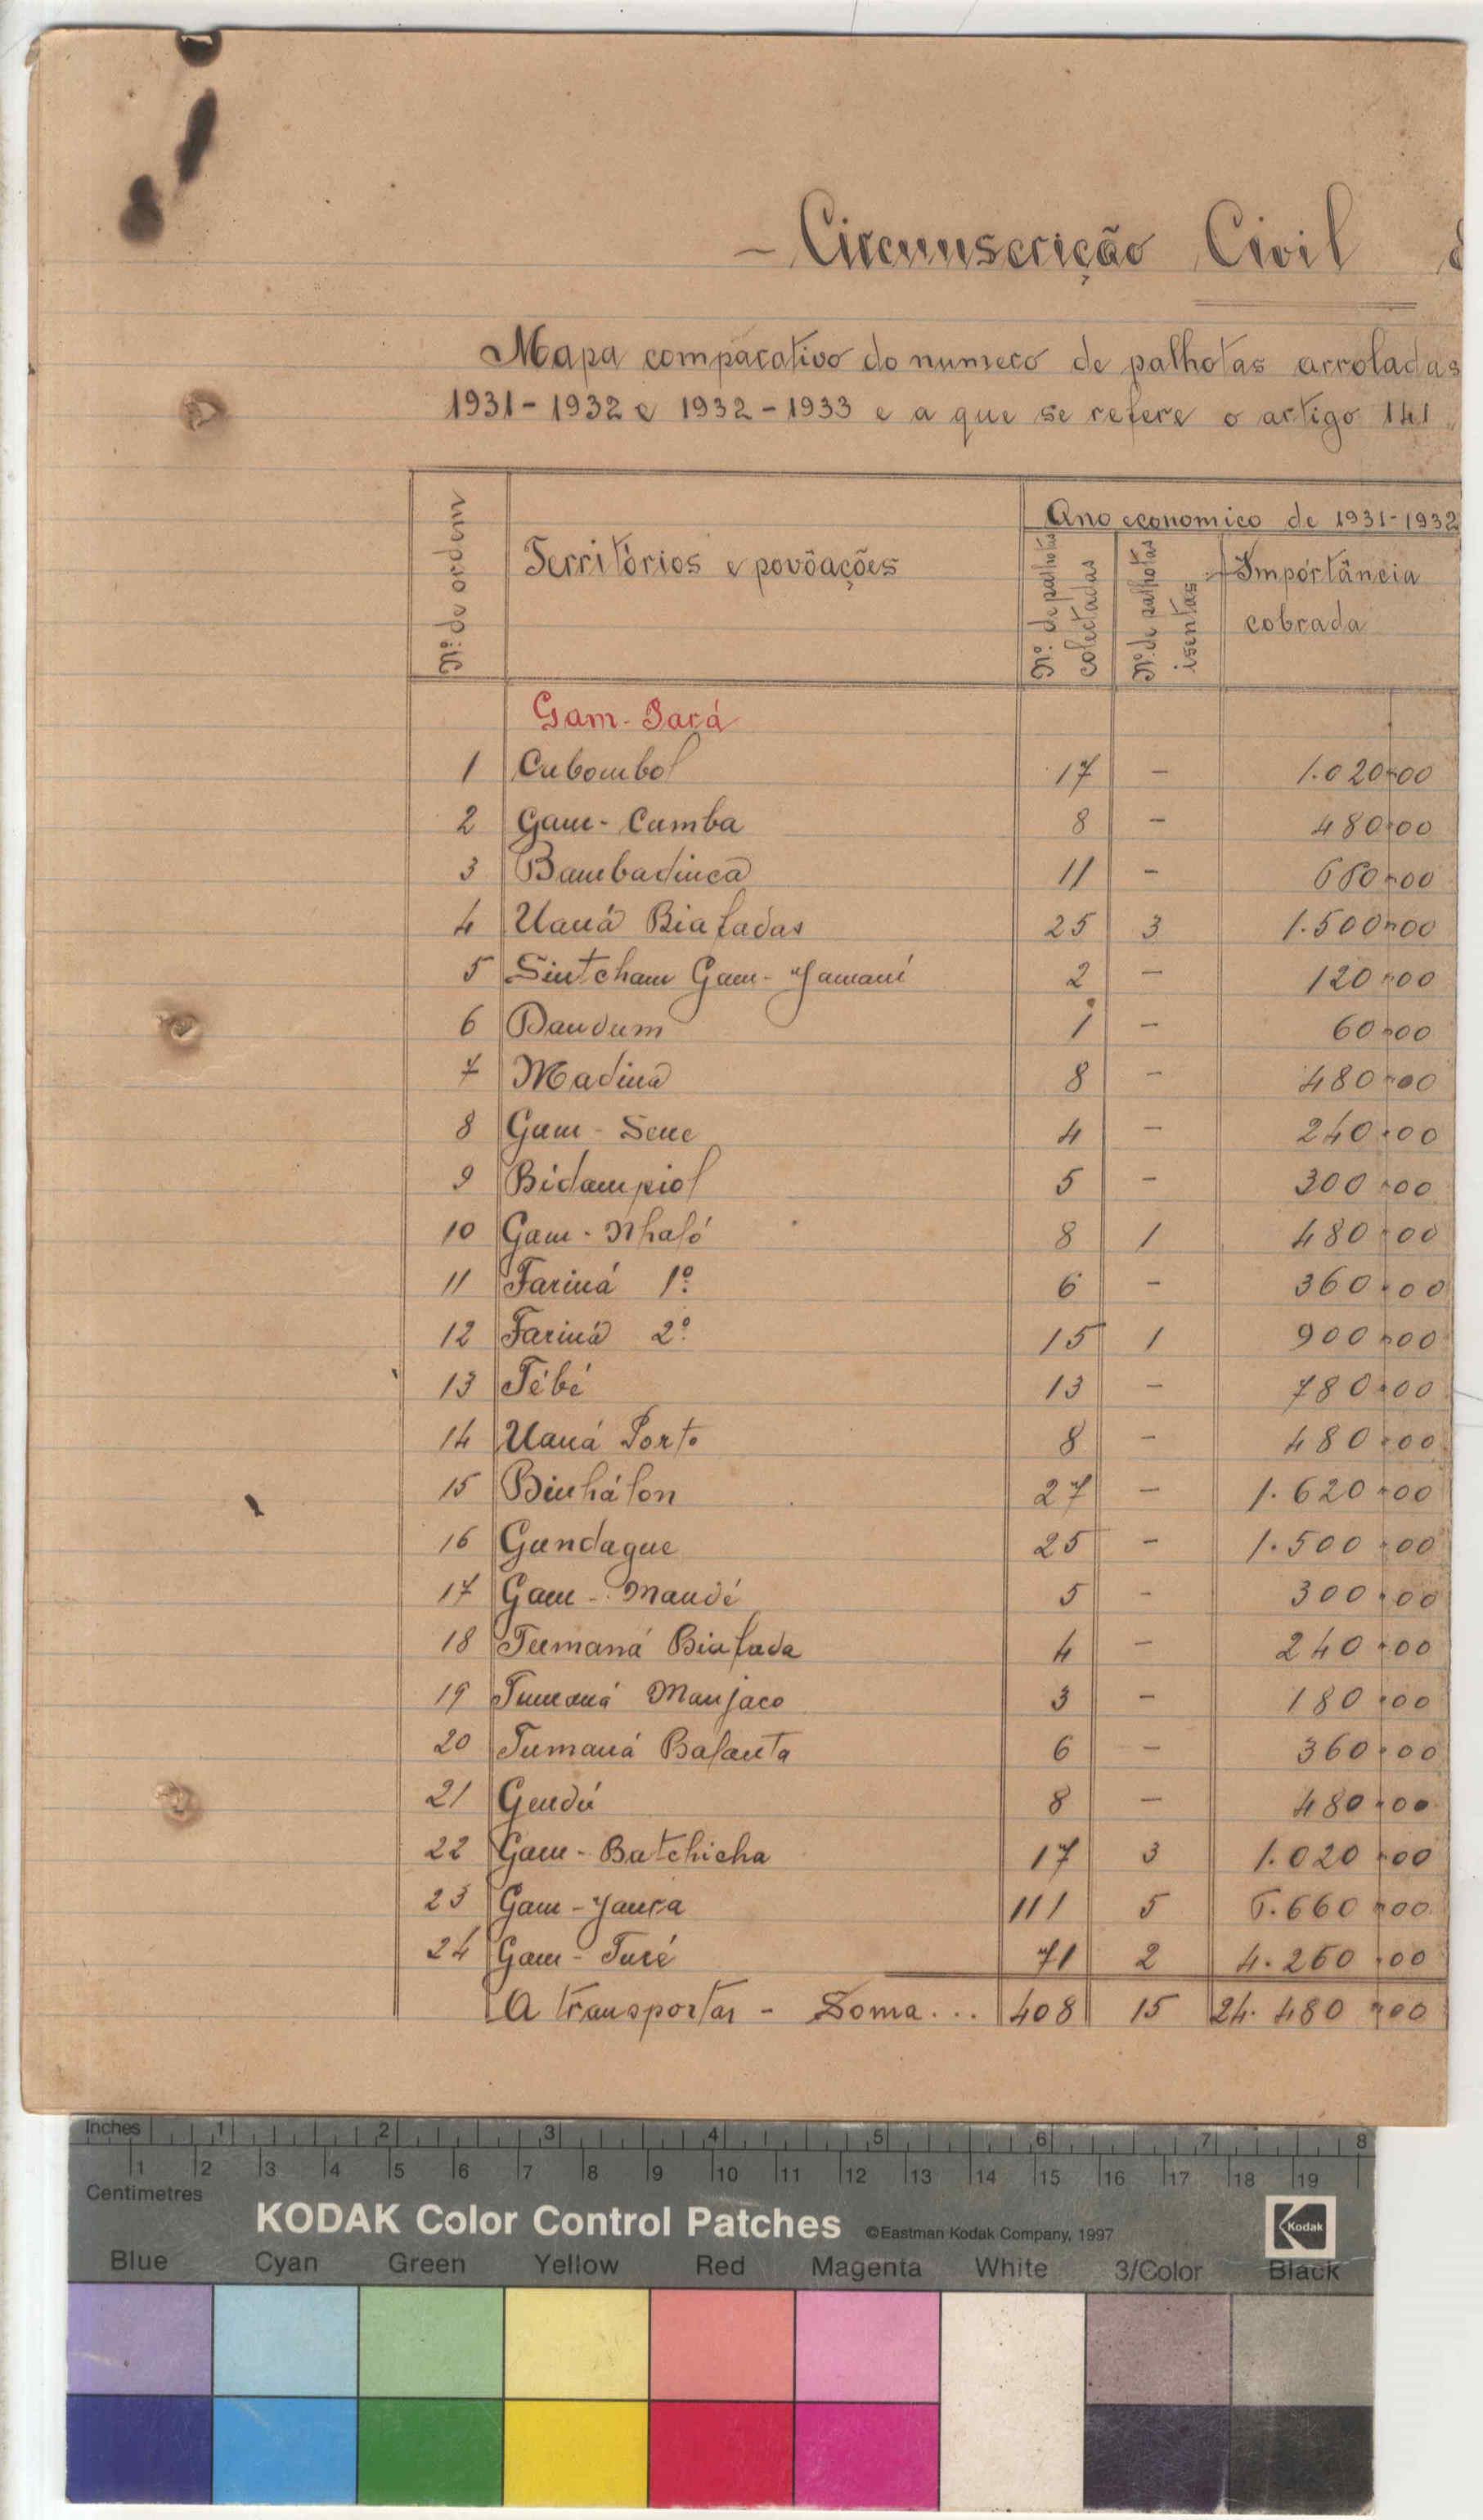 - Circunscrição Civil
Mapa comparativo do numero de palhotas arroladas
1931-1932 e 1932-1933 e a que se refere o artigo 141
Nº de ordem
Territòrios e povôações
Ano economico de 1931-1932
Nº. de palhotas colectadas
Nº. de palhotas isentas
Importância cobrada
Gam-Sará
1 Cubombol 17 - 1.020$00
2 Gam-Cumba 8 - 480$00
3 Bambadinca 11 - 660$00
4 Uaná Biafadas 25 3 1.500$00
5 Sintcham Gam-Yamaní 2 - 120$00
6 Dandum 1 - 60$00
7 Madina 8 - 480$00
8 Gam-Sene 4 - 240$00
9 Bidampiol 5 - 300$00
10 Gam-Nhaló 8 1 480$00
11 Fariná 1º. 6 - 360$00
12 Fariná 2º. 15 1 900$00
13 Tébé 13 - 780$00
14 Uaná Porto 8 - 480$00
15 Binhálon 27 - 1.620$00
16 Gundague 25 - 1.500$00
17 Gam-Mandé 5 - 300$00
18 Tumaná Biafada 4 - 240$00
19 Tumaná Manjaco 3 - 180$00
20 Tumaná Balanta 6 - 360$00
21 Gendú 8 - 480$00
22 Gam-Batchicha 17 3 1.020$00
23 Gam-Yanra 111 5 6.660$00
24 Gam-Turé 71 2 4.260$00
A transportar - Soma... 408 15 24.480$00
Inches 1 2 3 4 5 6 7 8
1 2 3 4 5 6 7 8 9 10 11 12 13 14 15 16 17 18 19
Centimetres
KODAK Color Control Patches ©Eastman Kodak Company, 1997 Kodak
Blue Cyan Green Yellow Red Magenta White 3/Color Black